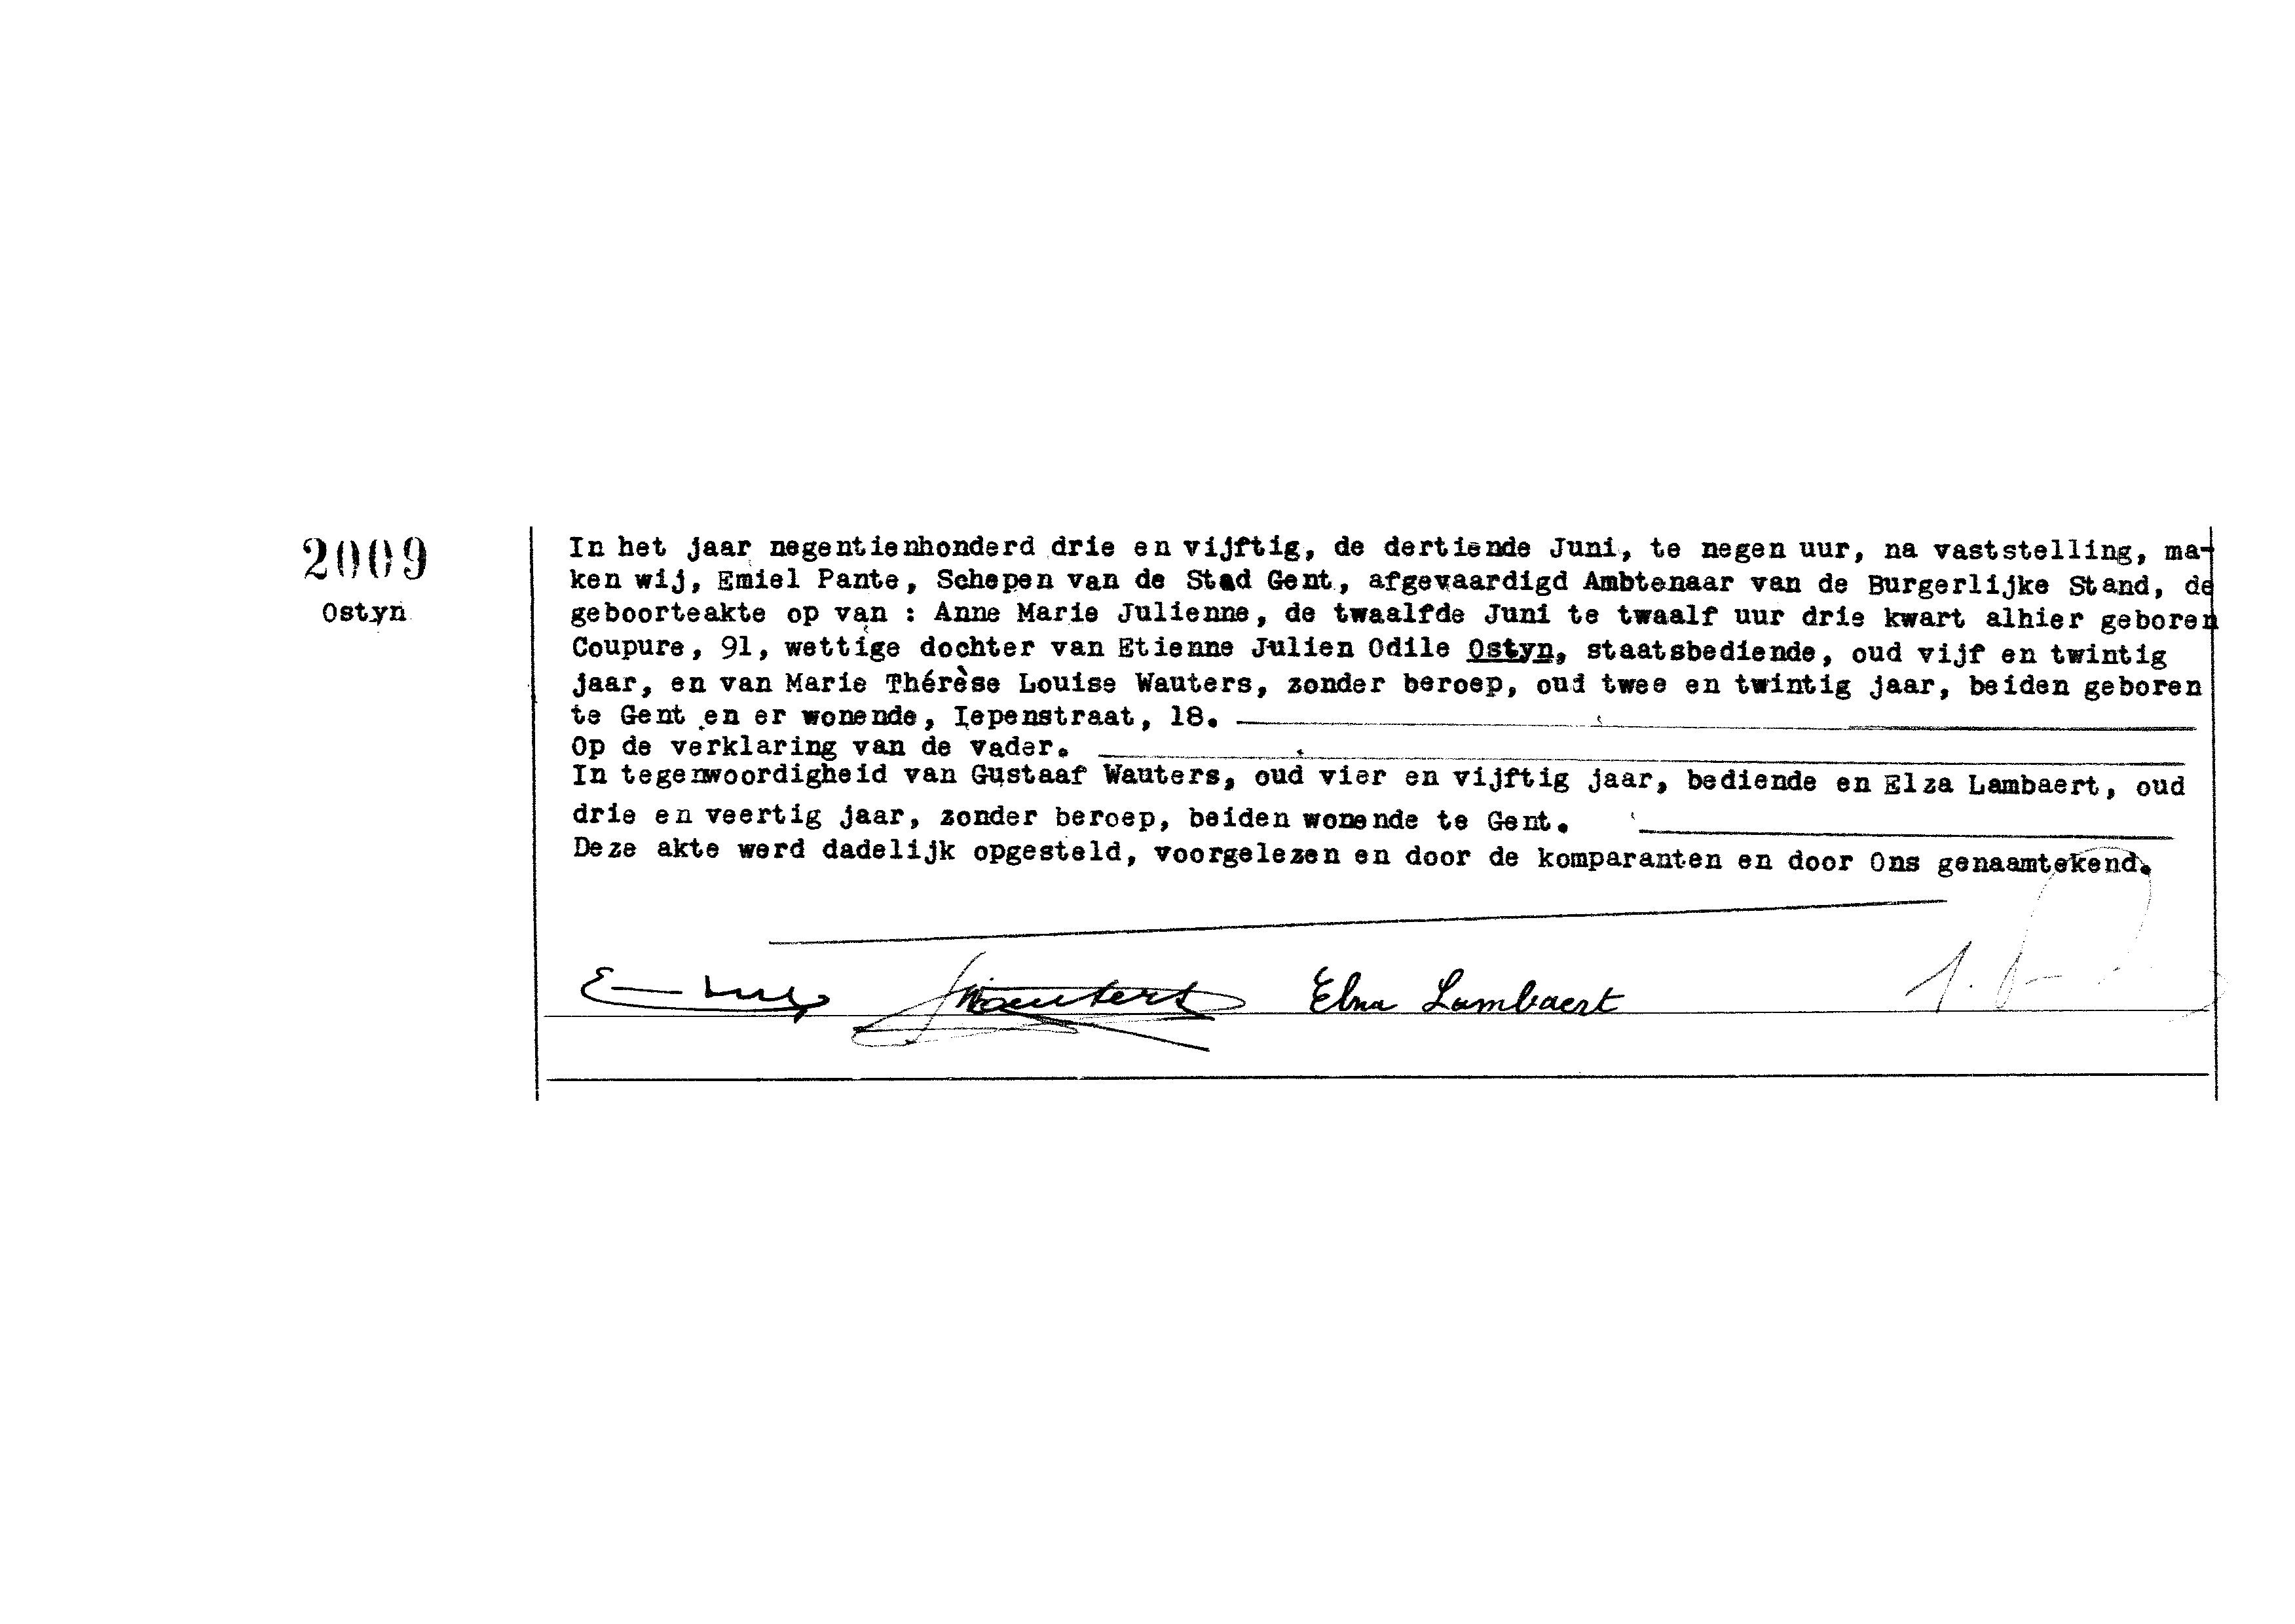 2009
Ostyn
In het jaar negentienhonderd drie en vijftig, de dertiende Juni, te negen uur, na vaststelling, ma-
ken wij, Emiel Pante, Schepen van de Stad Gent, afgevaardigd Ambtenaar van de Burgerlijke Stand, de
geboorteakte op van : Anne Marie Julienne, de twaalfde Juni te twaalf uur drie kwart alhier geboren
Coupure, 91, wettige dochter van Etienne Julien Odile Ostyn, staatsbediende, oud vijf en twintig
jaar, en van Marie Thérèse Louise Wauters, zonder beroep, oud twee en twintig jaar, beiden geboren
te Gent en er wonende, Iepenstraat, 18.
Op de verklaring van de vader.
In tegenwoordigheid van Gustaaf Wauters, oud vier en vijftig jaar, bediende en Elza Lambaert, oud
drie en veertig jaar, zonder beroep, beiden wonende te Gent.
Deze akte werd dadelijk opgesteld, voorgelezen en door de komparanten en door Ons genaamtekend.
Wauters Elza Lambaert